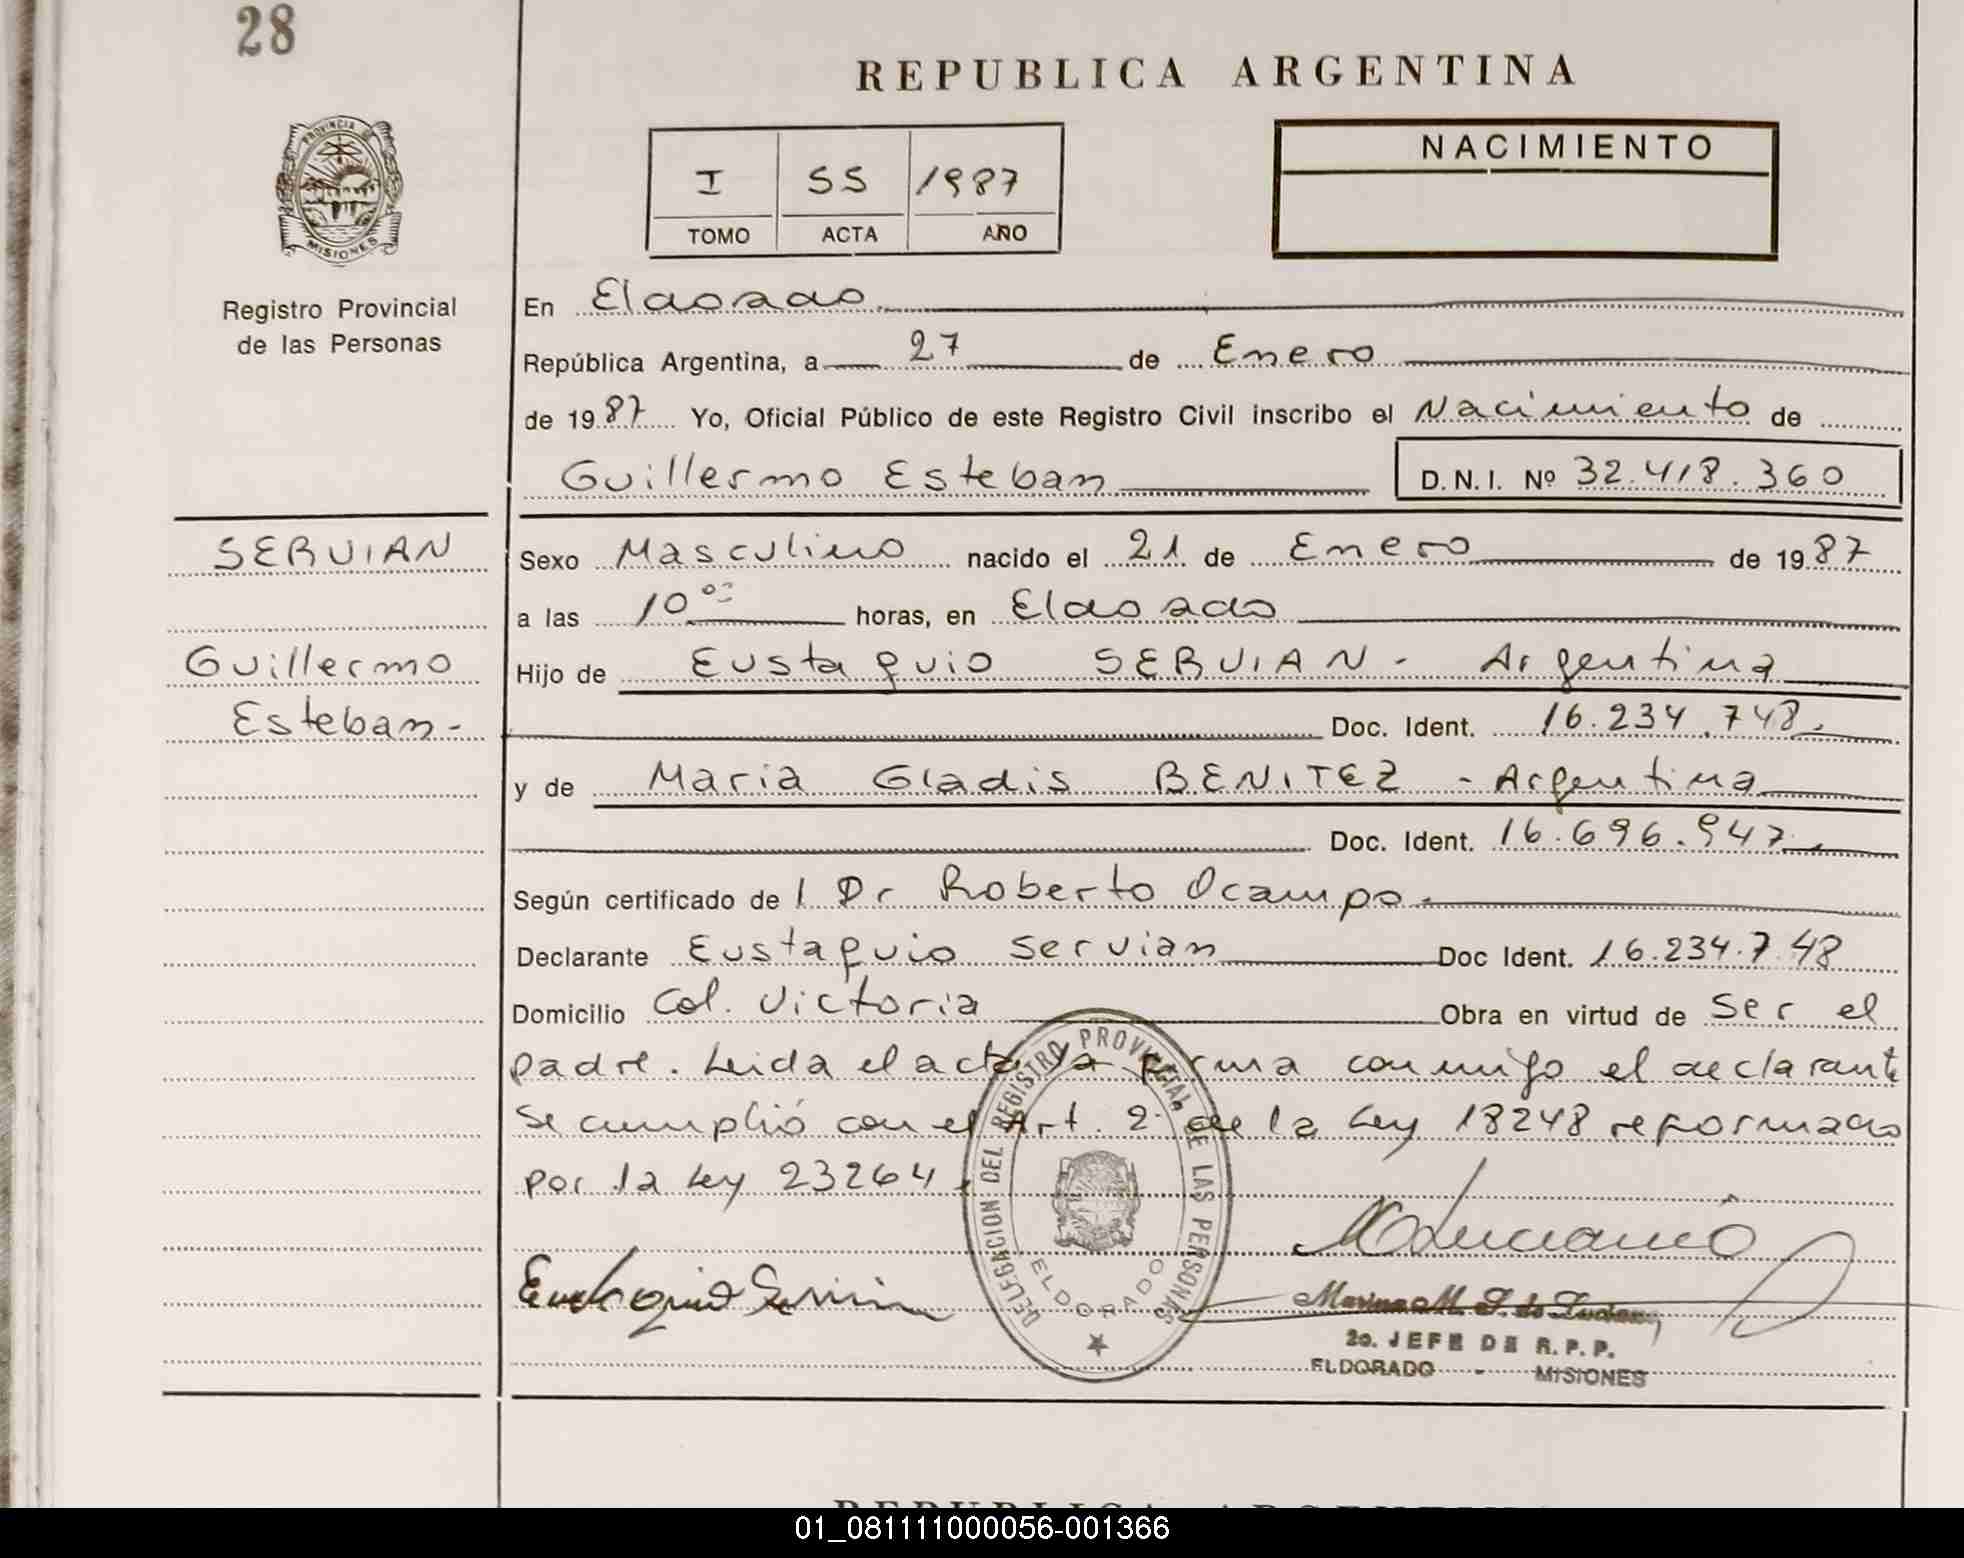 28
REPUBLICA ARGENTINA
PROVINCIA DE
MISIONES
Registro Provincial
de las Personas
I 55 1987
TOMO ACTA AÑO
NACIMIENTO
En Eldorado
República Argentina, a 27 de Enero
de 1987 Yo, Oficial Público de este Registro Civil inscribo el Nacimiento de
Guillermo Esteban D.N.I. Nº 32.418.360
SERVIAN
Guillermo
Esteban-
Sexo Masculino nacido el 21 de Enero de 1987
a las 10 horas, en Eldorado
Hijo de Eustaquio SERVIAN - Argentina
Doc. Ident. 16.234.748.
y de Maria Gladis BENITEZ - Argentina
Doc. Ident. 16.696.947.
Según certificado de l Dr Roberto Ocampo.
Declarante Eustaquio Servian Doc Ident. 16.234.748
Domicilio Col. Victoria Obra en virtud de ser el
padre. Leida el acta la firma conmigo el declarante
se cumplió con el Art. 2º de la Ley 18248 reformado
por la Ley 23264.
DELEGACION DEL REGISTRO PROVINCIAL DE LAS PERSONAS
ELDORADO
Eustaquio Servian
Marina M. S. de Luciano
2o. JEFE DE R.P.P.
ELDORADO - MISIONES
01_081111000056-001366